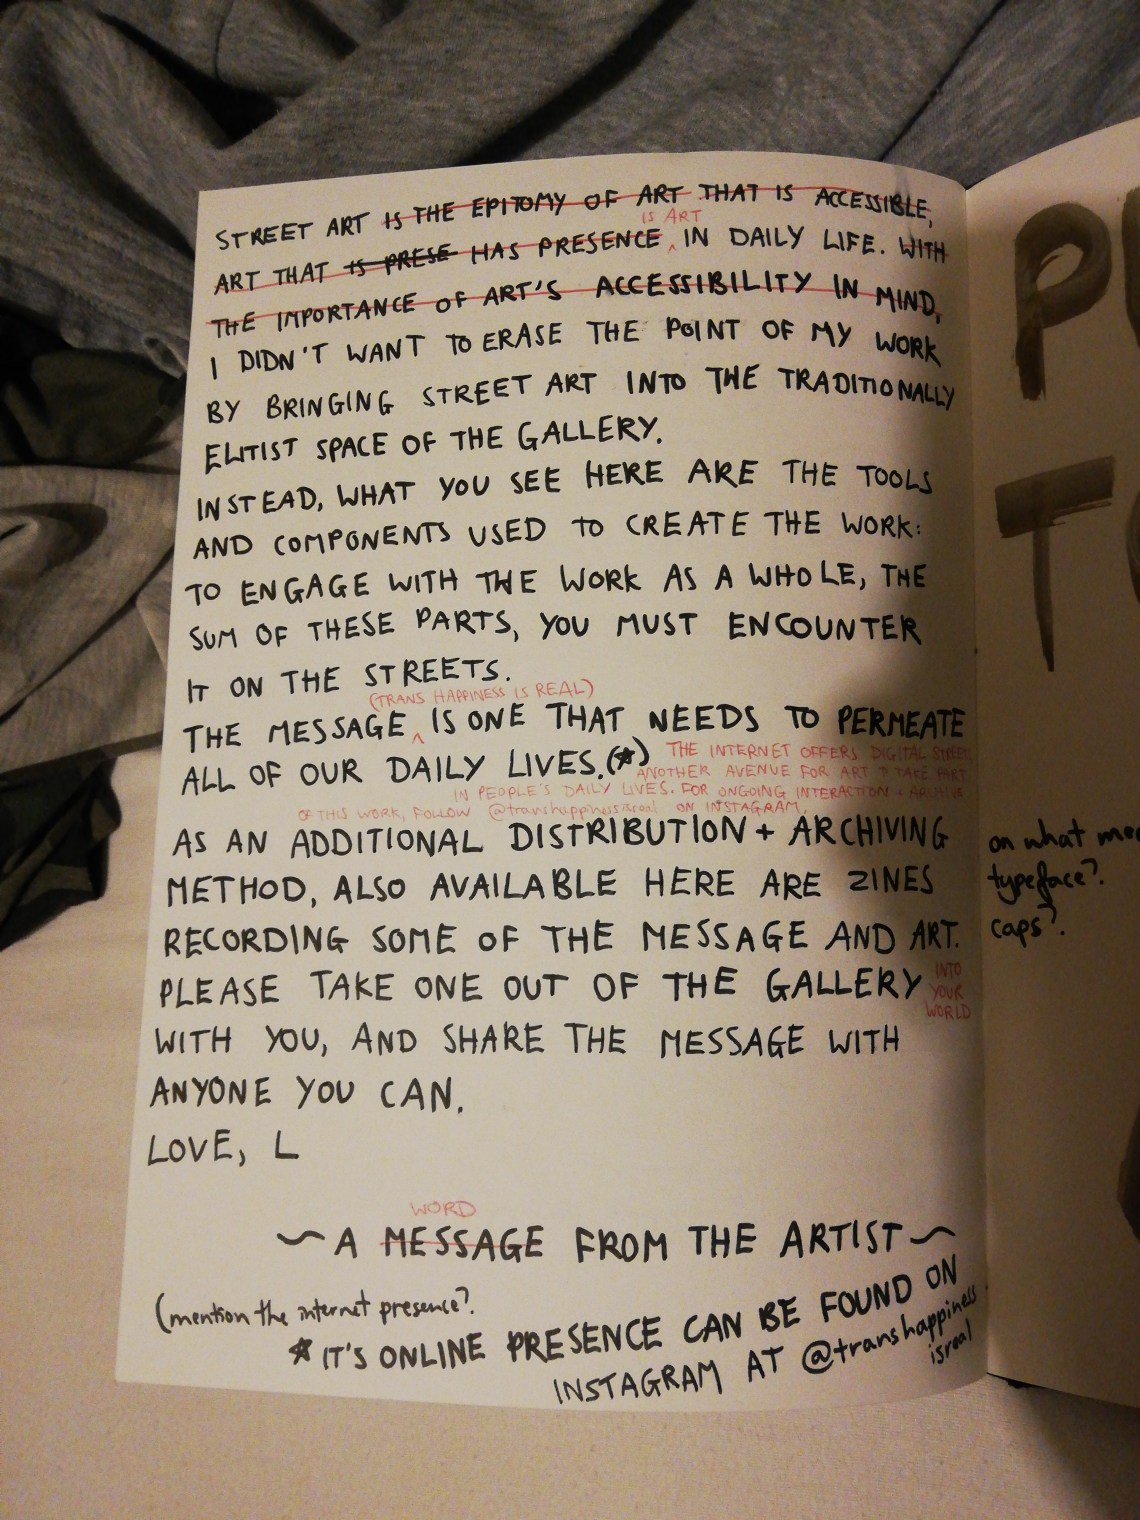 STREET ART IS THE EPITOMY OF ART THAT IS ACCESSIBLE,
IS ART
ART THAT IS PRESE HAS PRESENCE IN DAILY LIFE. WITH
THE IMPORTANCE OF ART'S ACCESSIBILITY IN MIND,
I DIDN'T WANT TO ERASE THE POINT OF MY WORK
BY BRINGING STREET ART INTO THE TRADITIONALLY
ELITIST SPACE OF THE GALLERY.
INSTEAD, WHAT YOU SEE HERE ARE THE TOOLS
AND COMPONENTS USED TO CREATE THE WORK:
TO ENGAGE WITH THE WORK AS A WHOLE, THE
SUM OF THESE PARTS, YOU MUST ENCOUNTER
IT ON THE STREETS.
(TRANS HAPPINESS IS REAL)
THE MESSAGE IS ONE THAT NEEDS TO PERMEATE
ALL OF OUR DAILY LIVES.(*)
THE INTERNET OFFERS DIGITAL STREETS
ANOTHER AVENUE FOR ART TO TAKE PART
IN PEOPLE'S DAILY LIVES. FOR ONGOING INTERACTION + ARCHIVE
OF THIS WORK, FOLLOW @transhappinessisreal ON INSTAGRAM.
AS AN ADDITIONAL DISTRIBUTION + ARCHIVING
METHOD, ALSO AVAILABLE HERE ARE ZINES
RECORDING SOME OF THE MESSAGE AND ART.
PLEASE TAKE ONE OUT OF THE GALLERY
INTO
YOUR
WORLD
WITH YOU, AND SHARE THE MESSAGE WITH
ANYONE YOU CAN.
LOVE, L
WORD
~A MESSAGE FROM THE ARTIST~
(mention the internet presence?
* IT'S ONLINE PRESENCE CAN BE FOUND ON
INSTAGRAM AT @transhappiness
isreal
on what
typeface?
caps?